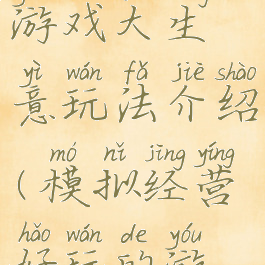 游戏大生
yì wán fǎ jiè shào
意玩法介绍
mó nǐ jīng yíng
(模拟经营
hǎo wán de yóu
好玩的游